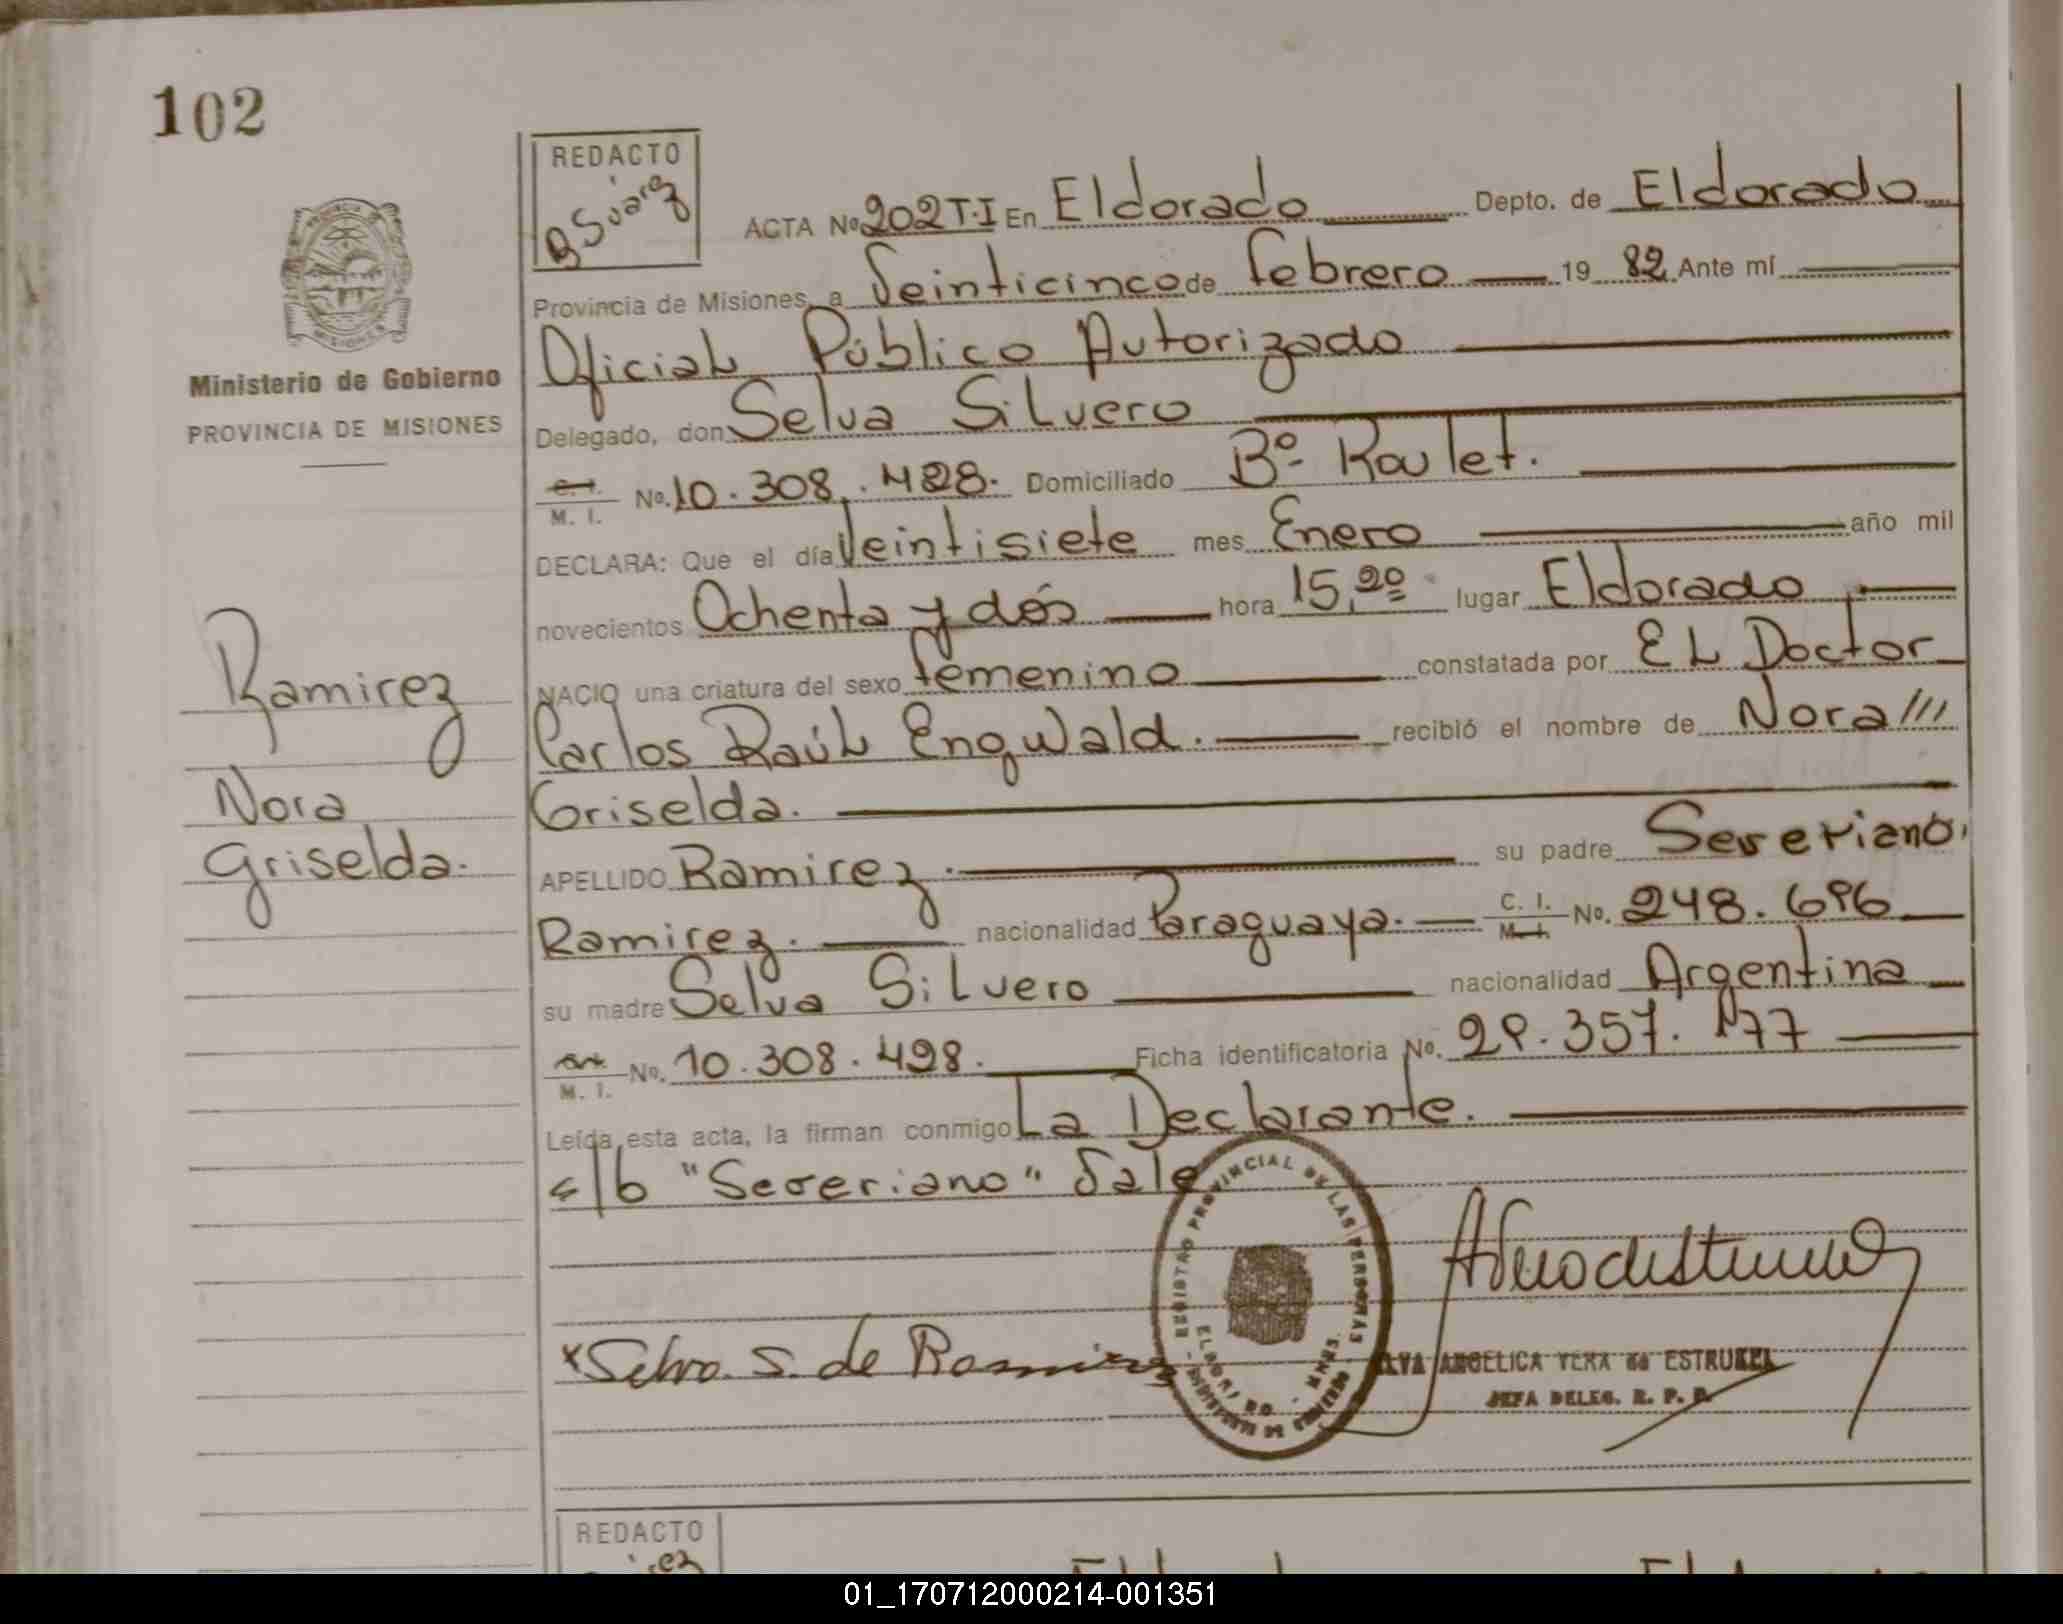 102
REDACTO
B Suárez
ACTA Nº 202 T.I En Eldorado Depto. de Eldorado
Provincia de Misiones, a Veinticinco de Febrero 19 82 Ante mí
Oficial Público Autorizado
Ministerio de Gobierno
PROVINCIA DE MISIONES
Delegado, don Selva Silvero
C. I. M. I. No. 10.308.428. Domiciliado Bº Roulet.
DECLARA: Que el día Veintisiete mes Enero año mil
novecientos Ochenta y dós hora 15,20 lugar Eldorado
NACIO una criatura del sexo femenino constatada por EL Doctor
Carlos Raúl Engwald. recibió el nombre de Nora
Griselda.
Ramirez
Nora
Griselda.
APELLIDO Ramirez. su padre Severiano
Ramirez. nacionalidad Paraguaya. C. I. M. I. No. 248.696
su madre Selva Silvero nacionalidad Argentina
M. I. No. 10.308.428. Ficha identificatoria No. 29.357.177
Leída esta acta, la firman conmigo La Declarante.
s/b "Severiano" Vale
REGISTRO PROVINCIAL DE LAS PERSONAS
ELDORADO - MNES.
x Selva. S. de Ramirez
ANGELICA VERA de ESTRUBEL
JEFA DELEG. R. P. P.
REDACTO
01_170712000214-001351